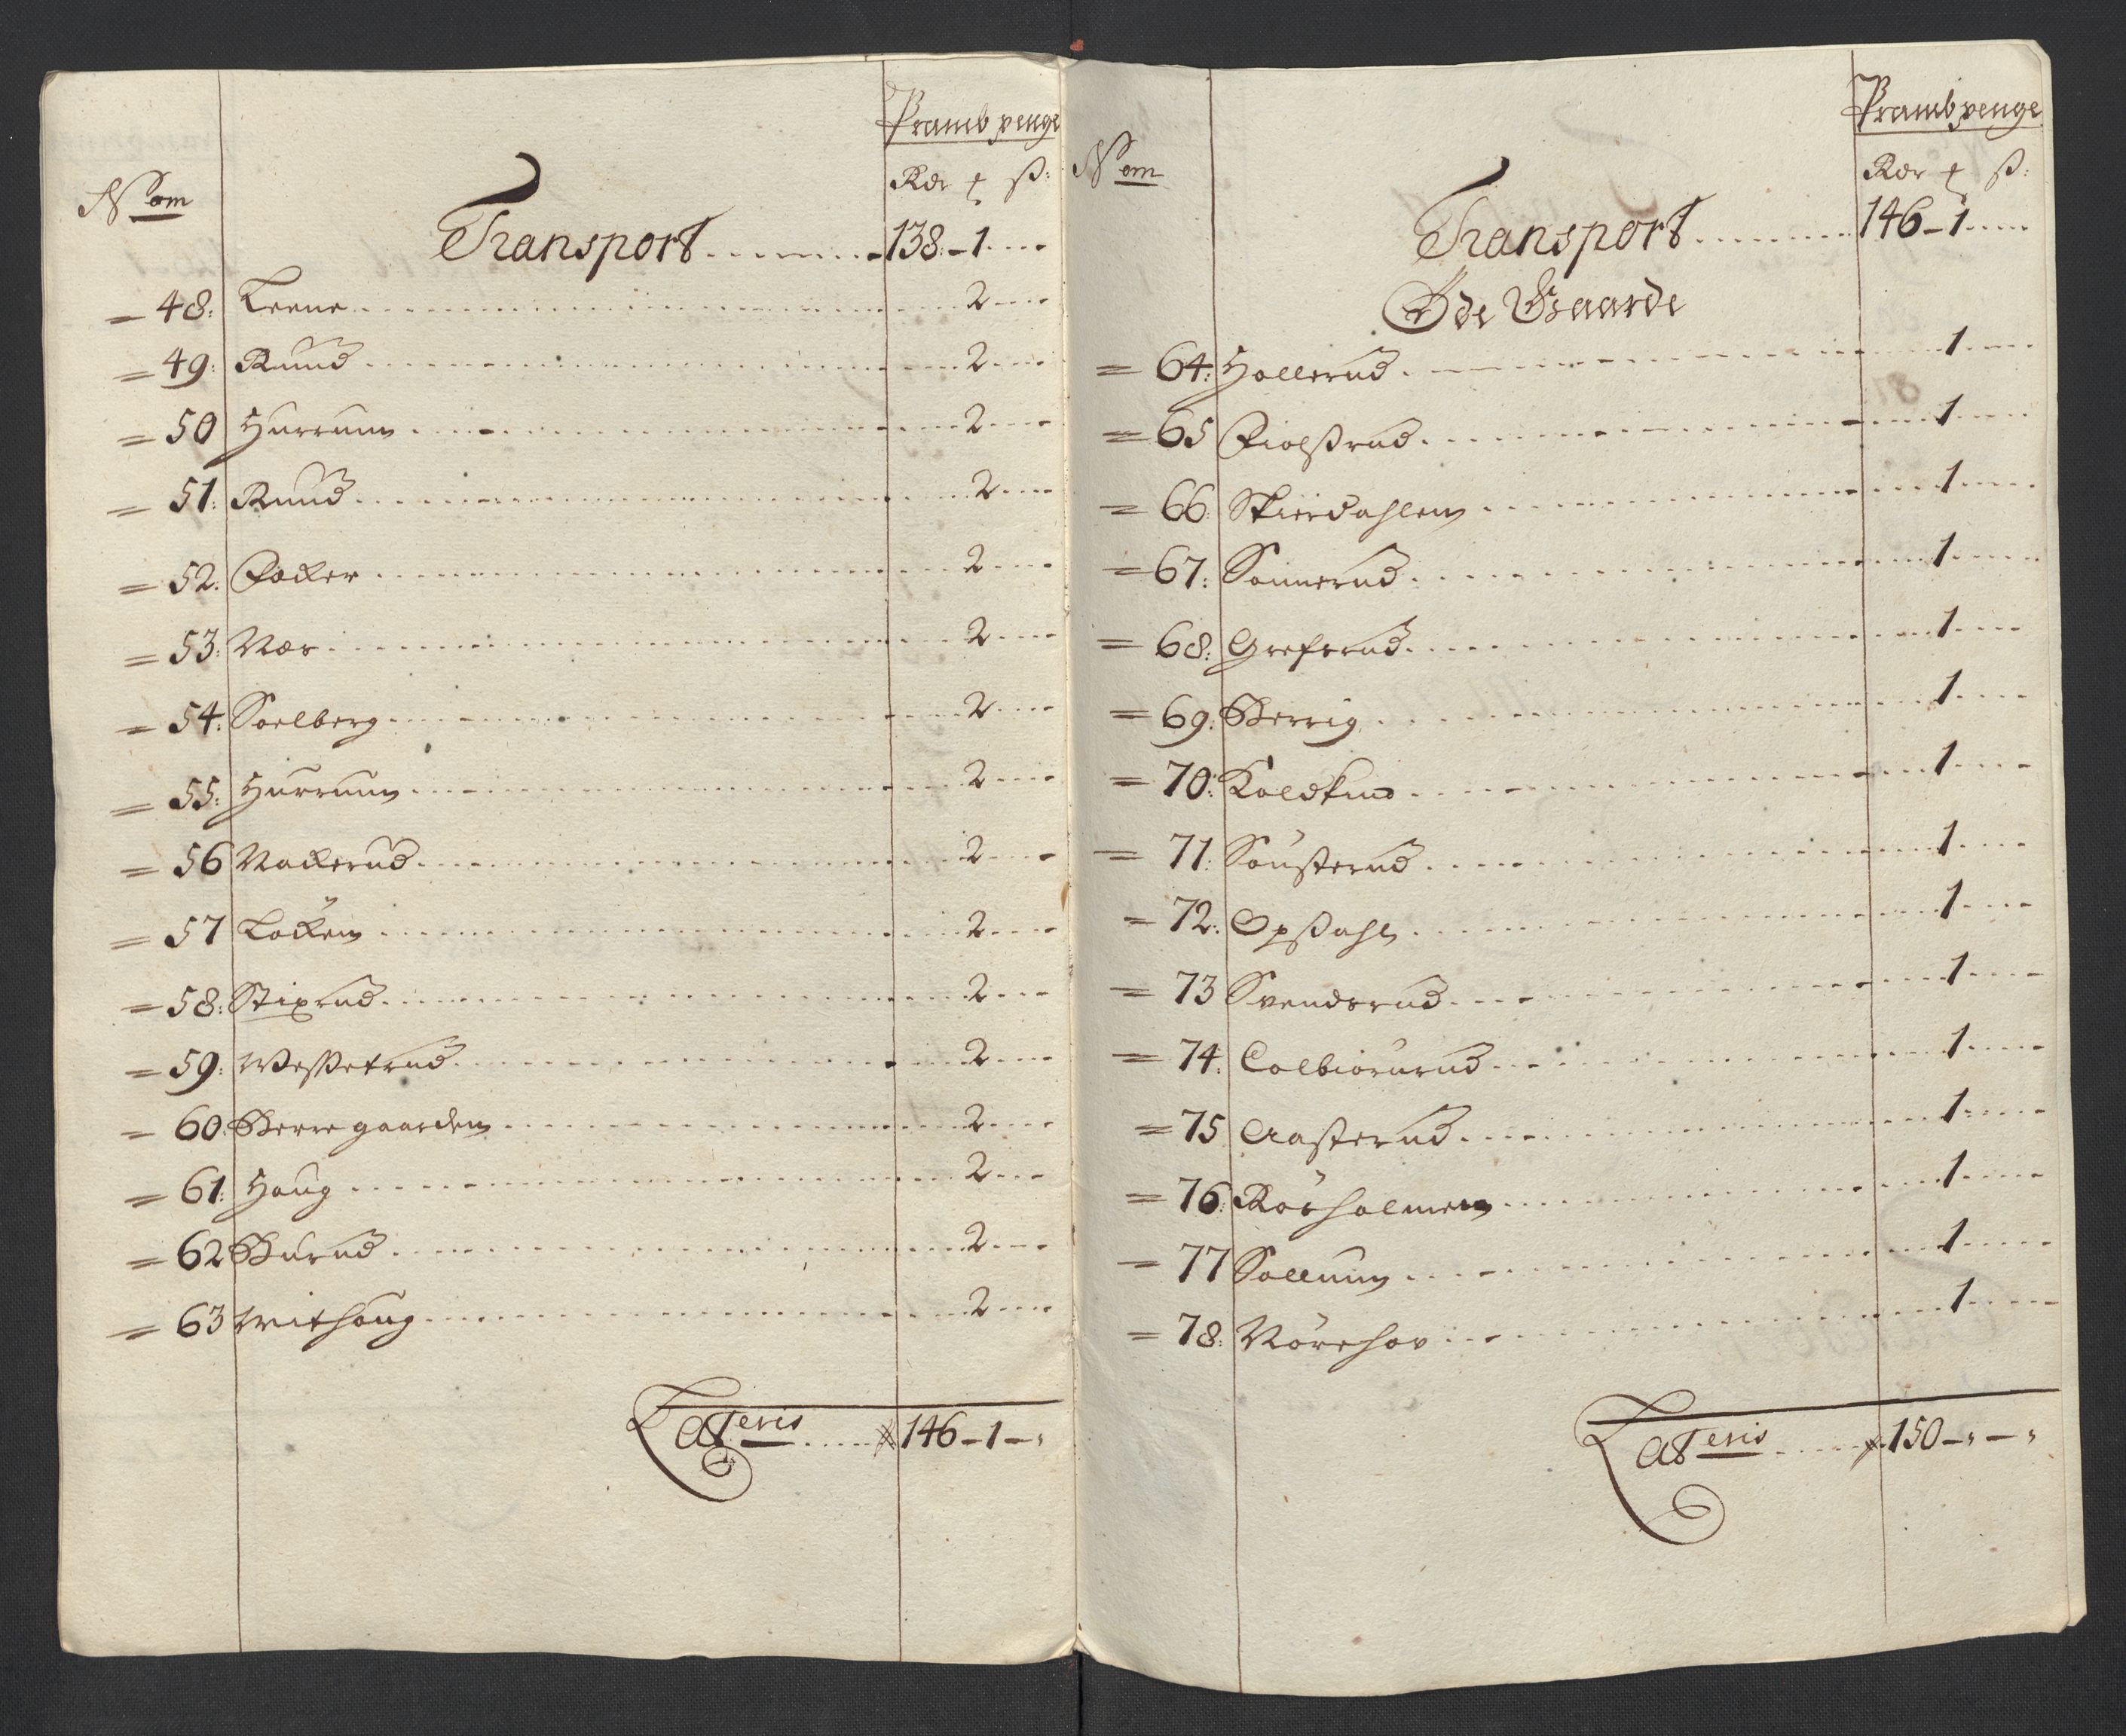 Prambpenge
N om Rdr ß:
Transport 138 - 1
48: Leene 2
49: Ruud 2
50 Hurrum 2
51: Ruud 2
52. Focker 2
53: Næs 2
54: Soelberg 2
55: Hurrum 2
56 Nackerud 2
57 Löcken 2
58: Stixrud 2
59: Wessetrud 2
60: Berregaarden 2
61: Houg 2
62 Burud 2
63 Withoug 2
Lateris 146 - 1 -
Prambpenge
N om Rdr ß:
Transport 146 - 1
Öde Gaarde
64: Hollerud 1
65 Fiolßrud 1
66: Skierdahlen 1
67: Sonnerud 1
68: Grefsrud 1
69: Berrig 1
70: Koldkind 1
71: Sousterud 1
72: Opsahl 1
73 Svendsrud 1
74: Colbiørnrud 1
75 Aasterud 1
76: Rörholmen 1
77 Sollum 1
78: Nörehov 1
Lateris 150 - -